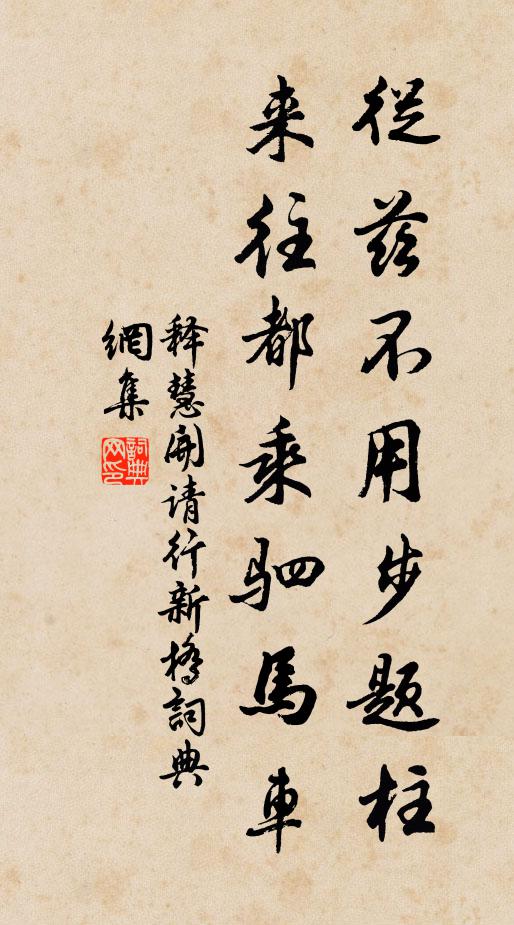 從茲不用步題柱
来往都乘驷馬車
释慧開请行新橋詞典
網集
詞典网印